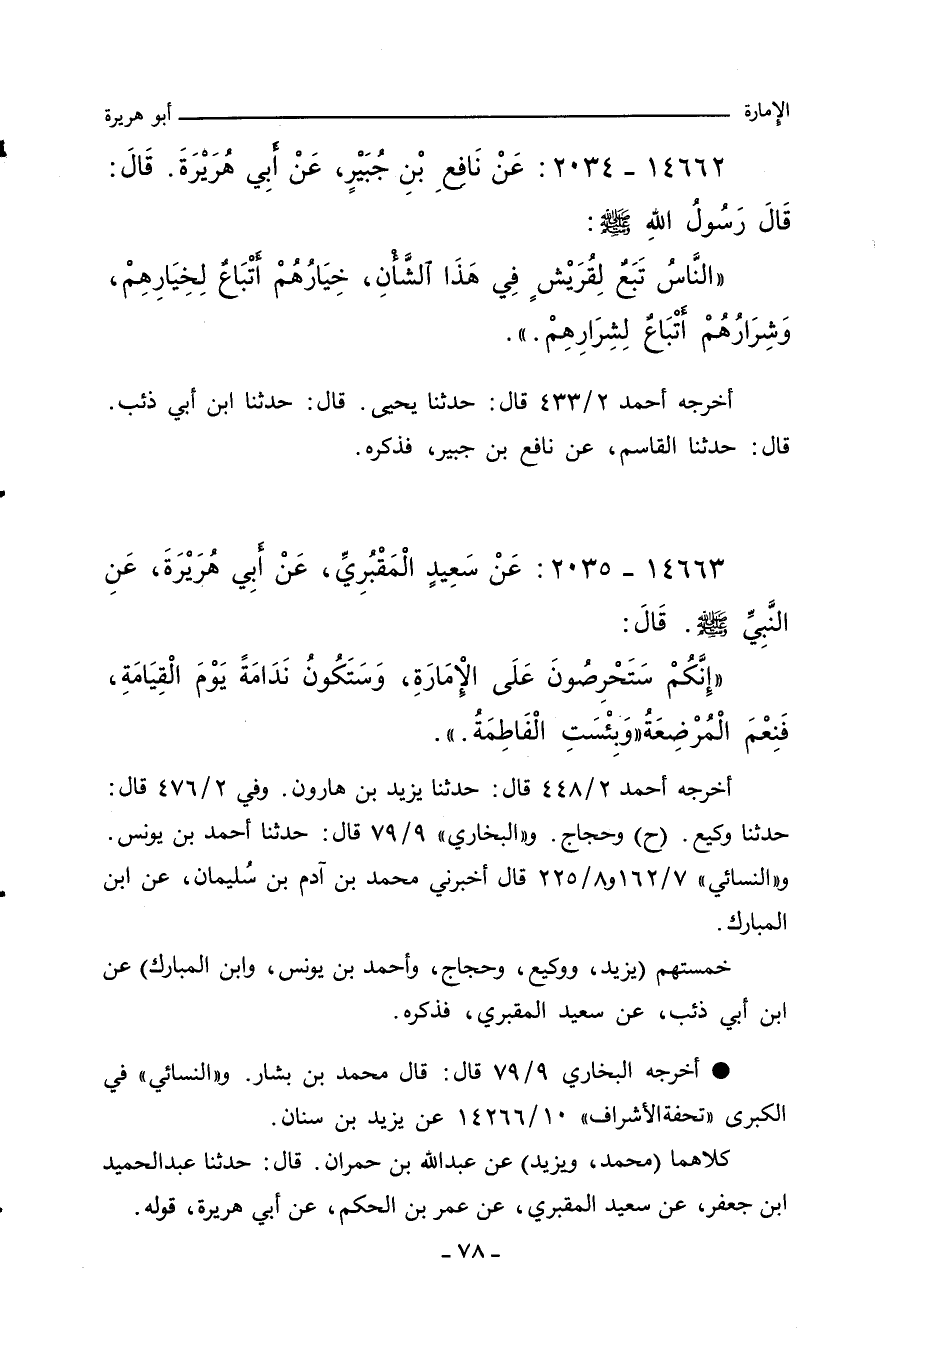 الإمارة ــــــــــــ أبو هريرة
١٤٦٦٢ - ٢٠٣٤ : عَنْ نَافِعِ بْنِ جُبَيْرٍ، عَنْ أَبِي هُرَيْرَةَ. قَالَ:
قَالَ رَسُولُ اللهِ ﷺ:
«النَّاسُ تَبَعٌ لِقُرَيْشٍ فِي هَذَا الشَّأْنِ، خِيَارُهُمْ أَتْبَاعٌ لِخِيَارِهِمْ،
وَشِرَارُهُمْ أَتْبَاعٌ لِشِرَارِهِمْ.».
أخرجه أحمد ٤٣٣/٢ قال: حدثنا يحيى. قال: حدثنا ابن أبي ذئب.
قال: حدثنا القاسم، عن نافع بن جبير، فذكره.
١٤٦٦٣ - ٢٠٣٥ : عَنْ سَعِيدٍ الْمَقْبُرِيِّ، عَنْ أَبِي هُرَيْرَةَ، عَنِ
النَّبِيِّ ﷺ. قَالَ:
«إِنَّكُمْ سَتَحْرِصُونَ عَلَى الْإِمَارَةِ، وَسَتَكُونُ نَدَامَةً يَوْمَ الْقِيَامَةِ،
فَنِعْمَ الْمُرْضِعَةُ«وَبِئْسَتِ الْفَاطِمَةُ.».
أخرجه أحمد ٤٤٨/٢ قال: حدثنا يزيد بن هارون. وفي ٤٧٦/٢ قال:
حدثنا وكيع. (ح) وحجاج. و«البخاري» ٧٩/٩ قال: حدثنا أحمد بن يونس.
و«النسائي» ١٦٢/٧و٢٢٥/٨ قال أخبرني محمد بن آدم بن سُليمان، عن ابن
المبارك.
خمستهم (يزيد، ووكيع، وحجاج، وأحمد بن يونس، وابن المبارك) عن
ابن أبي ذئب، عن سعيد المقبري، فذكره.
● أخرجه البخاري ٧٩/٩ قال: قال محمد بن بشار. و«النسائي» في
الكبرى «تحفةالأشراف» ١٤٢٦٦/١٠ عن يزيد بن سنان.
كلاهما (محمد، ويزيد) عن عبدالله بن حمران. قال: حدثنا عبدالحميد
ابن جعفر، عن سعيد المقبري، عن عمر بن الحكم، عن أبي هريرة، قوله.
- ٧٨ -